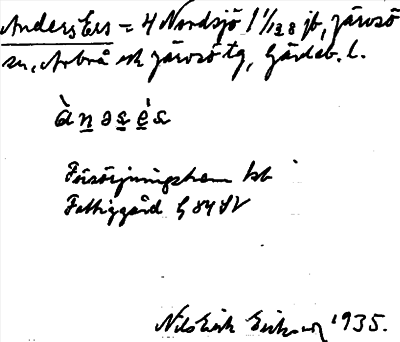 Anders Ers = 4 Nordsjö 1 1/128 jb, Järvsö
sn, Arbrå och Järvsö tg, Gävleb. l.
ànəsès
Försörjningshem bb
Fattiggård G 84 SV
Nils Erik Erikson 1935.